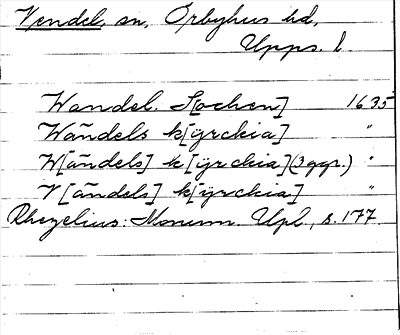 Vendel, sn, Örbyhus hd,
Upps. l.
Wandel. S[ochen] 1635
Wändels k[ÿrckia] "
W[ändels] k[ÿrckia] (3 ggr.) "
V[ändels] k[ÿrckia] "
Rhezelius: Monum. Upl., s. 177.